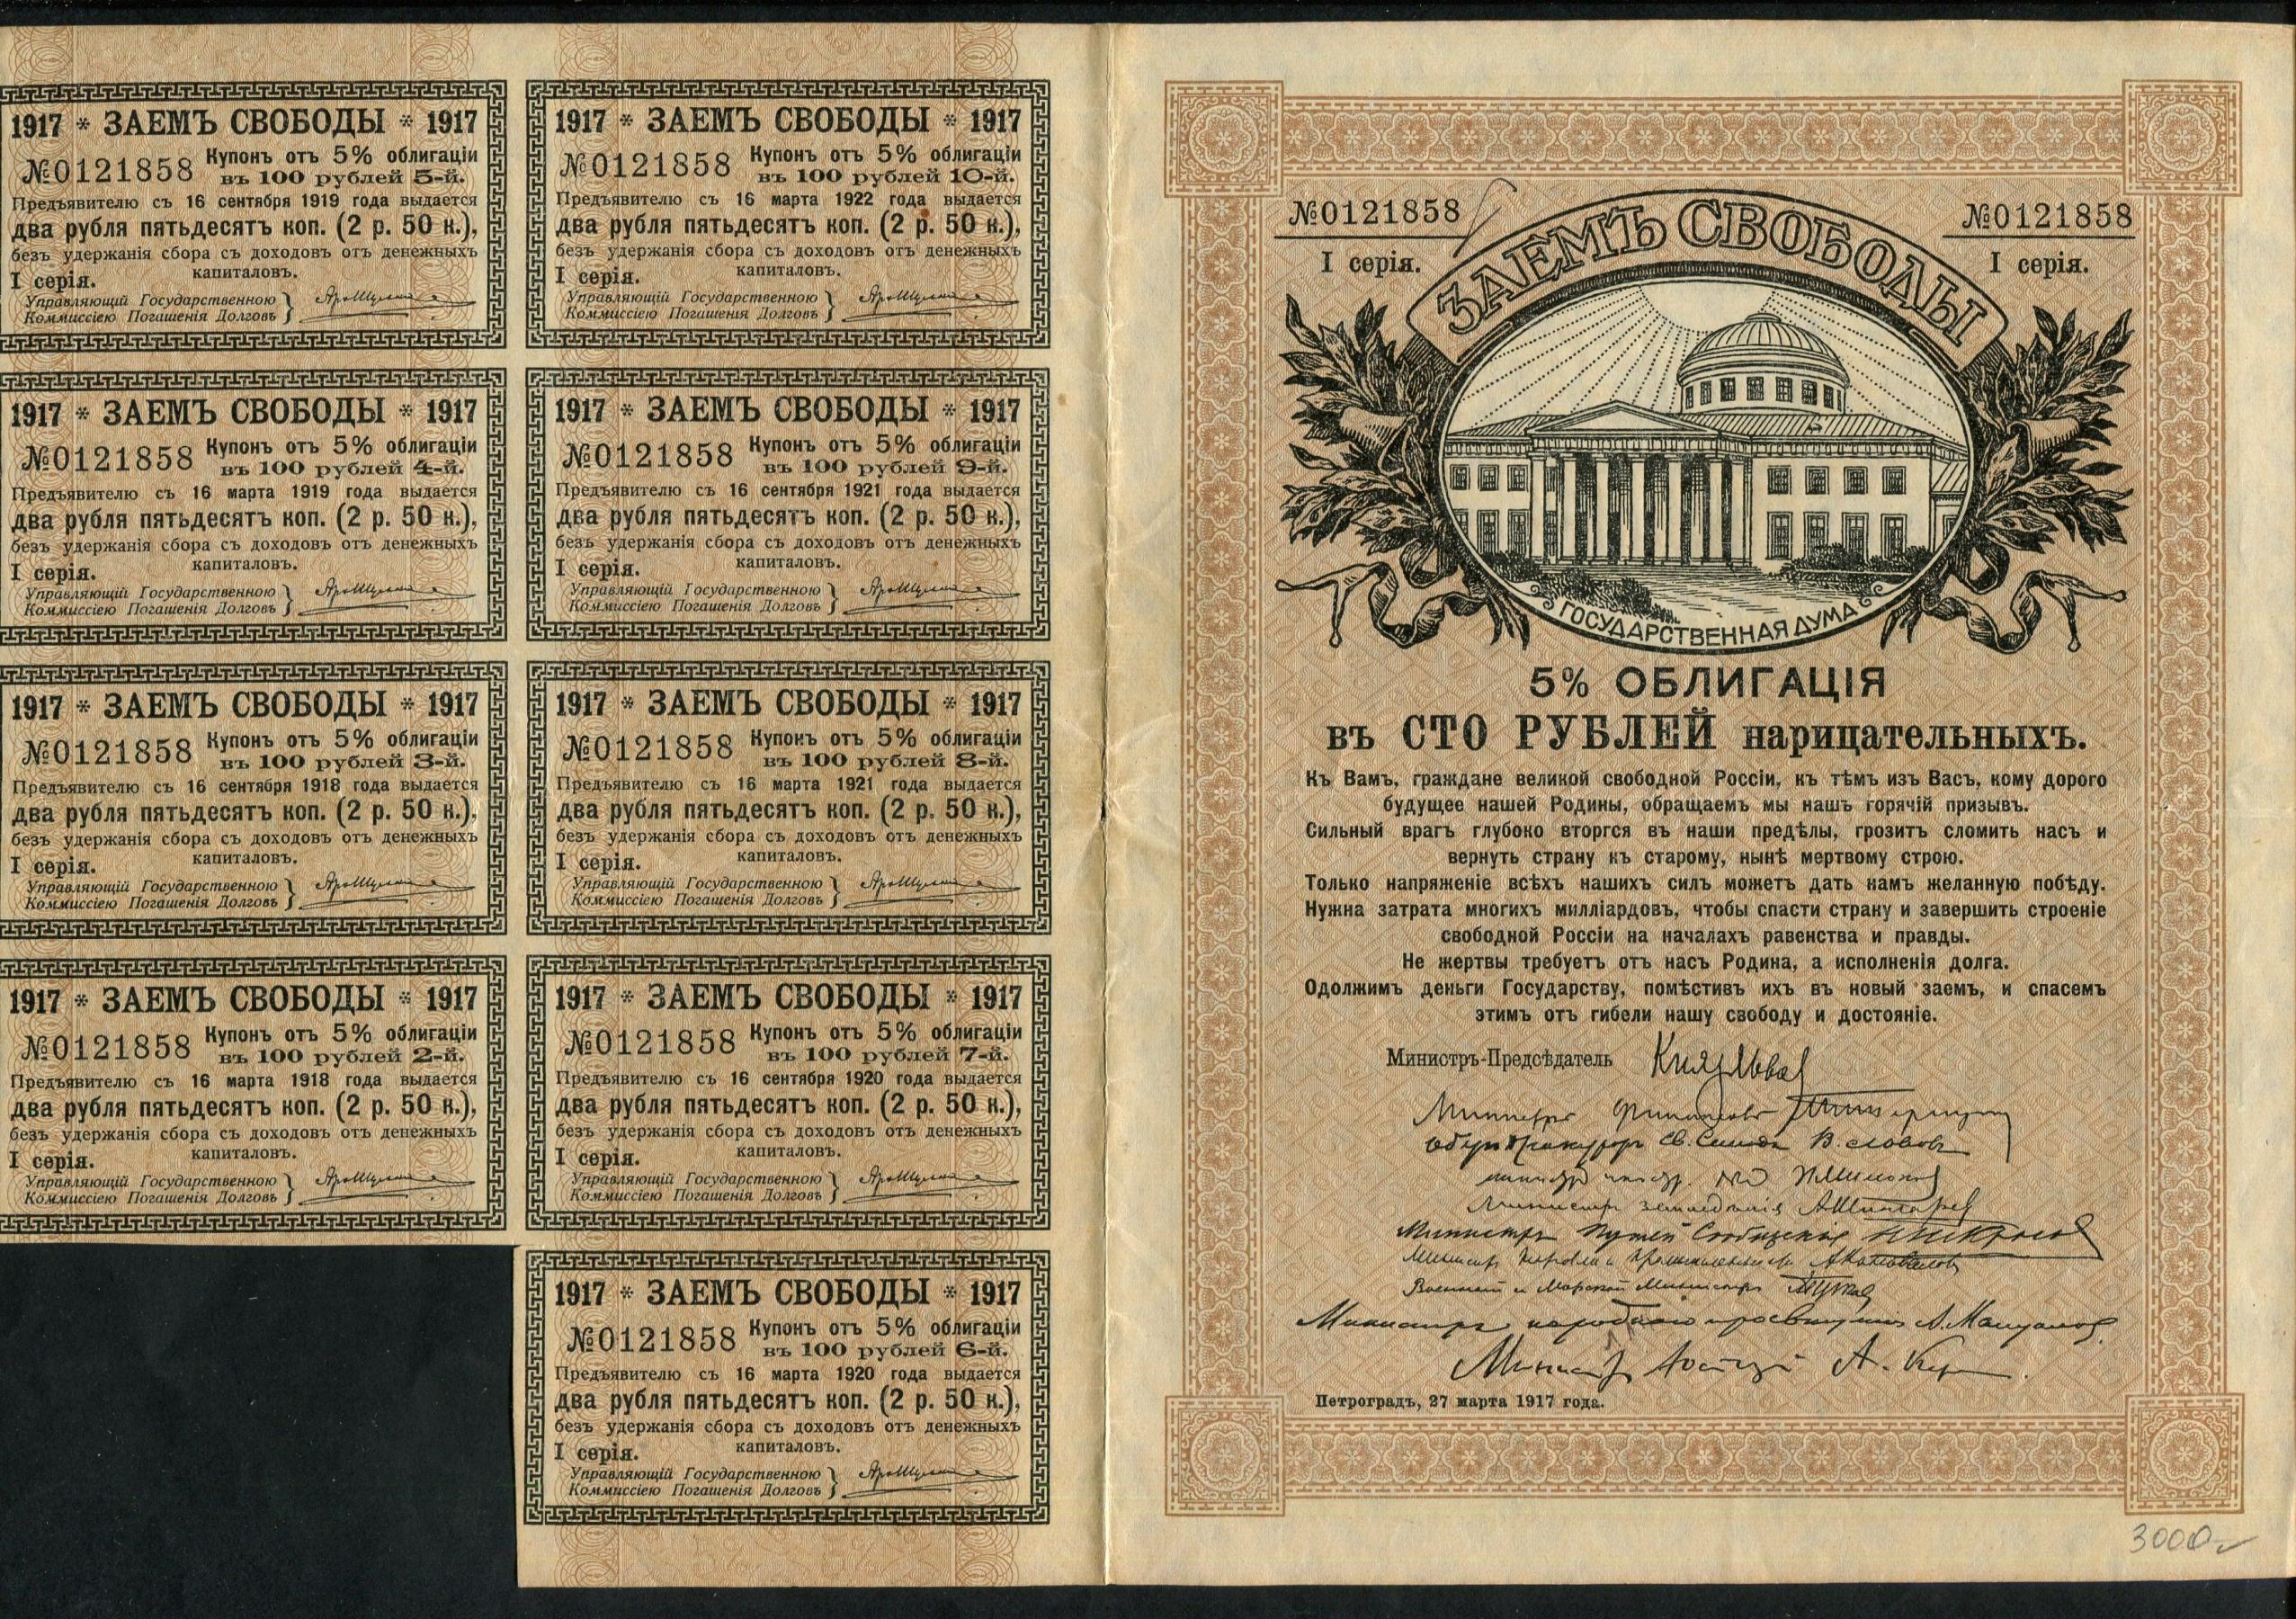 1917 * ЗАЕМЪ СВОБОДЫ * 1917
№0121858
Купонъ отъ 5% облигаціи
въ 100 рублей 5-й.
Предъявителю съ 16 сентября 1919 года выдается
два рубля пятьдесятъ коп. (2 р. 50 к.),
безъ удержанія сбора съ доходовъ отъ денежныхъ
капиталовъ.
I серія.
Управляющій Государственною
Коммиссіею Погашенія Долговъ
1917 * ЗАЕМЪ СВОБОДЫ * 1917
№0121858
Купонъ отъ 5% облигаціи
въ 100 рублей 4-й.
Предъявителю съ 16 марта 1919 года выдается
два рубля пятьдесятъ коп. (2 р. 50 к.),
безъ удержанія сбора съ доходовъ отъ денежныхъ
капиталовъ.
I серія.
Управляющій Государственною
Коммиссіею Погашенія Долговъ
1917 * ЗАЕМЪ СВОБОДЫ * 1917
№0121858
Купонъ отъ 5% облигаціи
въ 100 рублей 3-й.
Предъявителю съ 16 сентября 1918 года выдается
два рубля пятьдесятъ коп. (2 р. 50 к.),
безъ удержанія сбора съ доходовъ отъ денежныхъ
капиталовъ.
I серія.
Управляющій Государственною
Коммиссіею Погашенія Долговъ
1917 * ЗАЕМЪ СВОБОДЫ * 1917
№0121858
Купонъ отъ 5% облигаціи
въ 100 рублей 2-й.
Предъявителю съ 16 марта 1918 года выдается
два рубля пятьдесятъ коп. (2 р. 50 к.),
безъ удержанія сбора съ доходовъ отъ денежныхъ
капиталовъ.
I серія.
Управляющій Государственною
Коммиссіею Погашенія Долговъ
1917 * ЗАЕМЪ СВОБОДЫ * 1917
№0121858
Купонъ отъ 5% облигаціи
въ 100 рублей 10-й.
Предъявителю съ 16 марта 1922 года выдается
два рубля пятьдесятъ коп. (2 р. 50 к.),
безъ удержанія сбора съ доходовъ отъ денежныхъ
капиталовъ.
I серія.
Управляющій Государственною
Коммиссіею Погашенія Долговъ
1917 * ЗАЕМЪ СВОБОДЫ * 1917
№0121858
Купонъ отъ 5% облигаціи
въ 100 рублей 9-й.
Предъявителю съ 16 сентября 1921 года выдается
два рубля пятьдесятъ коп. (2 р. 50 к.),
безъ удержанія сбора съ доходовъ отъ денежныхъ
капиталовъ.
I серія.
Управляющій Государственною
Коммиссіею Погашенія Долговъ
1917 * ЗАЕМЪ СВОБОДЫ * 1917
№0121858
Купонъ отъ 5% облигаціи
въ 100 рублей 8-й.
Предъявителю съ 16 марта 1921 года выдается
два рубля пятьдесятъ коп. (2 р. 50 к.),
безъ удержанія сбора съ доходовъ отъ денежныхъ
капиталовъ.
I серія.
Управляющій Государственною
Коммиссіею Погашенія Долговъ
1917 * ЗАЕМЪ СВОБОДЫ * 1917
№0121858
Купонъ отъ 5% облигаціи
въ 100 рублей 7-й.
Предъявителю съ 16 сентября 1920 года выдается
два рубля пятьдесятъ коп. (2 р. 50 к.),
безъ удержанія сбора съ доходовъ отъ денежныхъ
капиталовъ.
I серія.
Управляющій Государственною
Коммиссіею Погашенія Долговъ
1917 * ЗАЕМЪ СВОБОДЫ * 1917
№0121858
Купонъ отъ 5% облигаціи
въ 100 рублей 6-й.
Предъявителю съ 16 марта 1920 года выдается
два рубля пятьдесятъ коп. (2 р. 50 к.),
безъ удержанія сбора съ доходовъ отъ денежныхъ
капиталовъ.
I серія.
Управляющій Государственною
Коммиссіею Погашенія Долговъ
№0121858
I серія.
ЗАЕМЪ СВОБОДЫ
№0121858
I серія.
ГОСУДАРСТВЕННАЯ ДУМА
5% ОБЛИГАЦІЯ
въ СТО РУБЛЕЙ нарицательныхъ.
Къ Вамъ, граждане великой свободной Россіи, къ тѣмъ изъ Васъ, кому дорого
будущее нашей Родины, обращаемъ мы нашъ горячій призывъ.
Сильный врагъ глубоко вторгся въ наши предѣлы, грозитъ сломить насъ и
вернуть страну къ старому, нынѣ мертвому строю.
Только напряженіе всѣхъ нашихъ силъ можетъ дать намъ желанную побѣду.
Нужна затрата многихъ милліардовъ, чтобы спасти страну и завершить строеніе
свободной Россіи на началахъ равенства и правды.
Не жертвы требуетъ отъ насъ Родина, а исполненія долга.
Одолжимъ деньги Государству, помѣстивъ ихъ въ новый заемъ, и спасемъ
этимъ отъ гибели нашу свободу и достояніе.
Министръ-Предсѣдатель Князь Львов
Министръ Финансовъ
Оберъ Прокуроръ Св. Синода В. Львовъ
Министръ земледѣлія А Шингарев
Министръ Путей Сообщенія Н Некрасов
Министръ Торговли и Промышленности А Коноваловъ
Военный и Морской Министръ
Министръ народнаго просвѣщенія А. Мануйлов
Министръ Юстиціи А. Кер
Петроградъ, 27 марта 1917 года.
3000-